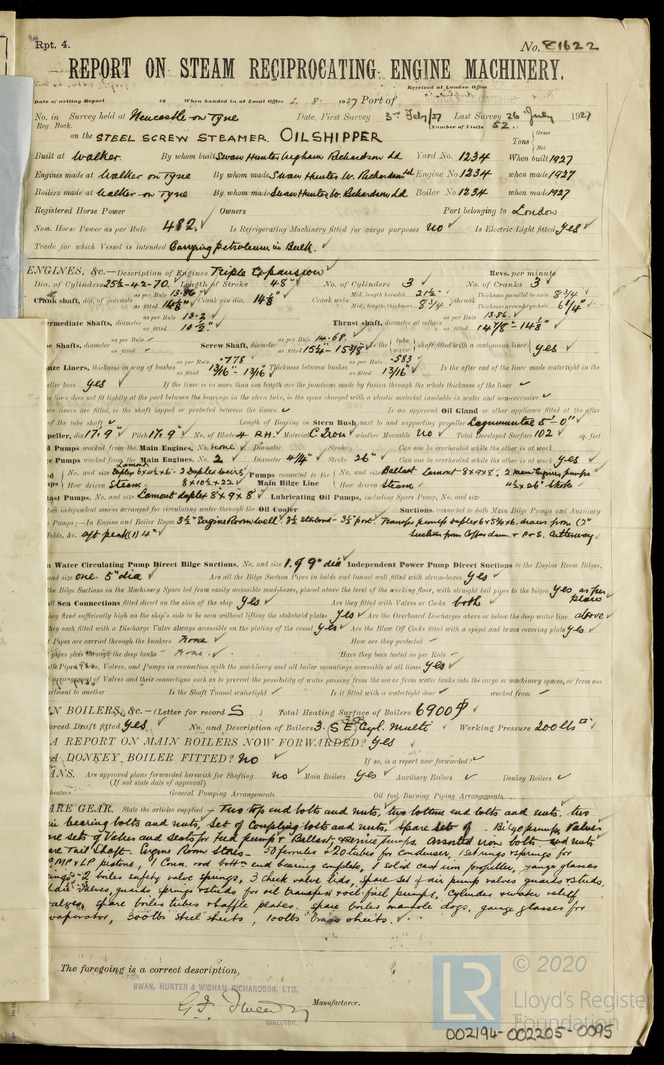 Rpt. 4.
No. 81622
REPORT ON STEAM RECIPROCATING ENGINE MACHINERY.
Received at London Office
Date of writing Report 19 When handed in at Local Office 2. 8. 1927 Port of
No. in Survey held at Newcastle-on-Tyne Date, First Survey 3rd Feb/27 Last Survey 26 July 1927
Reg. Book. (Number of Visits 52.
on the STEEL SCREW STEAMER OILSHIPPER Tons { Gross Net
Built at Walker. By whom built Swan Hunter Wigham Richardson Ld Yard No. 1234 When built 1927
Engines made at Walker on Tyne By whom made Swan Hunter W. Richardson Ld Engine No. 1234 when made 1927
Boilers made at Walker on Tyne By whom made Swan Hunter W. Richardson Ld Boiler No. 1234 when made 1927
Registered Horse Power Owners Port belonging to London
Nom. Horse Power as per Rule 482. Is Refrigerating Machinery fitted for cargo purposes no Is Electric Light fitted yes
Trade for which Vessel is intended Carrying petroleum in Bulk.
ENGINES, &c.—Description of Engines Triple Expansion Revs. per minute
Dia. of Cylinders 25½-42-70. Length of Stroke 48" No. of Cylinders 3 No. of Cranks 3
Crank shaft, dia. of journals as per Rule 13.86 as fitted 14⅛" Crank pin dia. 14⅛ Crank webs Mid. length breadth 21½ Mid. length thickness 8¾ shrunk Thickness parallel to axis 8¾ Thickness around eye-hole 6¼"
termediate Shafts, diameter as per Rule 13.2 as fitted 13½" Thrust shaft, diameter at collars as per Rule 13.86. as fitted 14⅛"
be Shafts, diameter as per Rule as fitted Screw Shaft, diameter as per Rule 14.68 as fitted 15¼ - 15⅜ Is the { tube screw } shaft fitted with a continuous liner { yes
nze Liners, thickness in way of bushes as per Rule .778 as fitted 13/16" Thickness between bushes as per Rule .583 as fitted 13/16" Is the after end of the liner made watertight in the
ller boss yes If the liner is in more than one length are the junctions made by fusion through the whole thickness of the liner
e liner does not fit tightly at the part between the bearings in the stern tube, is the space charged with a plastic material insoluble in water and non-corrosive
wo liners are fitted, is the shaft lapped or protected between the liners Is an approved Oil Gland or other appliance fitted at the after
of the tube shaft Length of Bearing in Stern Bush next to and supporting propeller Lagnumvitae 5'-0"
peller, dia 17'.9" Pitch 17'.9" No. of Blades 4 R.H. Material C. Iron whether Moveable no Total Developed Surface 102 sq. feet
d Pumps worked from the Main Engines, No. none Diameter Stroke Can one be overhauled while the other is at work
ge Pumps worked from the Main Engines, No. 2 Diameter 4¼" Stroke 26" Can one be overhauled while the other is at work yes
Lamont.
No. and size Duplex 6x4½x6. 2 Duplex weirs 8x10½x22 Pumps connected to the Main Bilge Line No. and size Ballast Lamont 8x9x8. 2 main Engines pumps 4¼x26" Stroke
How driven Steam How driven Steam
last Pumps, No. and size Lamont duplex 8x9x8 Lubricating Oil Pumps, including Spare Pump, No. and size
wo independent means arranged for circulating water through the Oil Cooler Suctions, connected to both Main Bilge Pumps and Auxiliary
Pumps;—In Engine and Boiler Room 3½" Engine Room well. 3½ Starboard - 3½ port.
Holds, &c. aft peak (1) 4"
n Water Circulating Pump Direct Bilge Suctions, No. and size 1. @ 9" dia Independent Power Pump Direct Suctions to the Engine Room Bilges,
and size one. 5" dia Are all the Bilge Suction Pipes in holds and tunnel well fitted with strum-boxes yes
he Bilge Suctions in the Machinery Space led from easily accessible mud-boxes, placed above the level of the working floor, with straight tail pipes to the bilges yes as per plan
ll Sea Connections fitted direct on the skin of the ship yes Are they fitted with Valves or Cocks both
hey fixed sufficiently high on the ship's side to be seen without lifting the stokehold plates yes Are the Overboard Discharges above or below the deep water line above
hey each fitted with a Discharge Valve always accessible on the plating of the vessel yes Are the Blow Off Cocks fitted with a spigot and brass covering plate yes
t Pipes are carried through the bunkers none How are they protected
pipes pass through the deep tanks None. Have they been tested as per Rule
ll Pipes, Cocks, Valves, and Pumps in connection with the machinery and all boiler mountings accessible at all times yes
arrangement of Valves and their connections such as to prevent the possibility of water passing from the sea or from water tanks into the cargo or machinery spaces, or from one
rtment to another Is the Shaft Tunnel watertight Is it fitted with a watertight door worked from
N BOILERS, &c.—(Letter for record S) Total Heating Surface of Boilers 6900
orced Draft fitted yes No. and Description of Boilers 3. S.E. Cyl. Mult. Working Pressure 200 lbs
A REPORT ON MAIN BOILERS NOW FORWARDED? yes
A DONKEY BOILER FITTED? no If so, is a report now forwarded?
ANS. Are approved plans forwarded herewith for Shafting no Main Boilers yes Auxiliary Boilers Donkey Boilers
(If not state date of approval)
heaters General Pumping Arrangements Oil fuel Burning Piping Arrangements
ARE GEAR. State the articles supplied:— Two top end bolts and nuts, two bottom end bolts and nuts, two
n bearing bolts and nuts, set of Coupling bolts and nuts, Spare set of Bilge pump Valves
ne sets of Valves and Seats for Feed pumps & Ballast, service pumps. Assorted iron bolts and nuts
re Tail Shaft. Engine Room Stores. 50 ferrules & 20 tubes for Condenser, 1 set rings & springs for
MP & LP pistons, 1 Conn. rod bottom end bearing complete, 1 solid cast iron propeller, gauge glasses
2 boiler safety valve springs, 3 check valve lids, spare set of air pump valves guards & studs,
valves, guards springs & studs for oil transfer & oil fuel pumps, cylinder & water relief
valves, spare boiler tubes & baffle plates. spare boiler manhole dogs, gauge glasses for
vaporator, 300 lbs steel sheets, 100 lbs brass sheets.
The foregoing is a correct description,
FOR
SWAN, HUNTER & WIGHAM RICHARDSON, LTD.
Manufacturer.
DIRECTOR.
LR
© 2020
Lloyd's Register
Foundation
002194-002205-0095